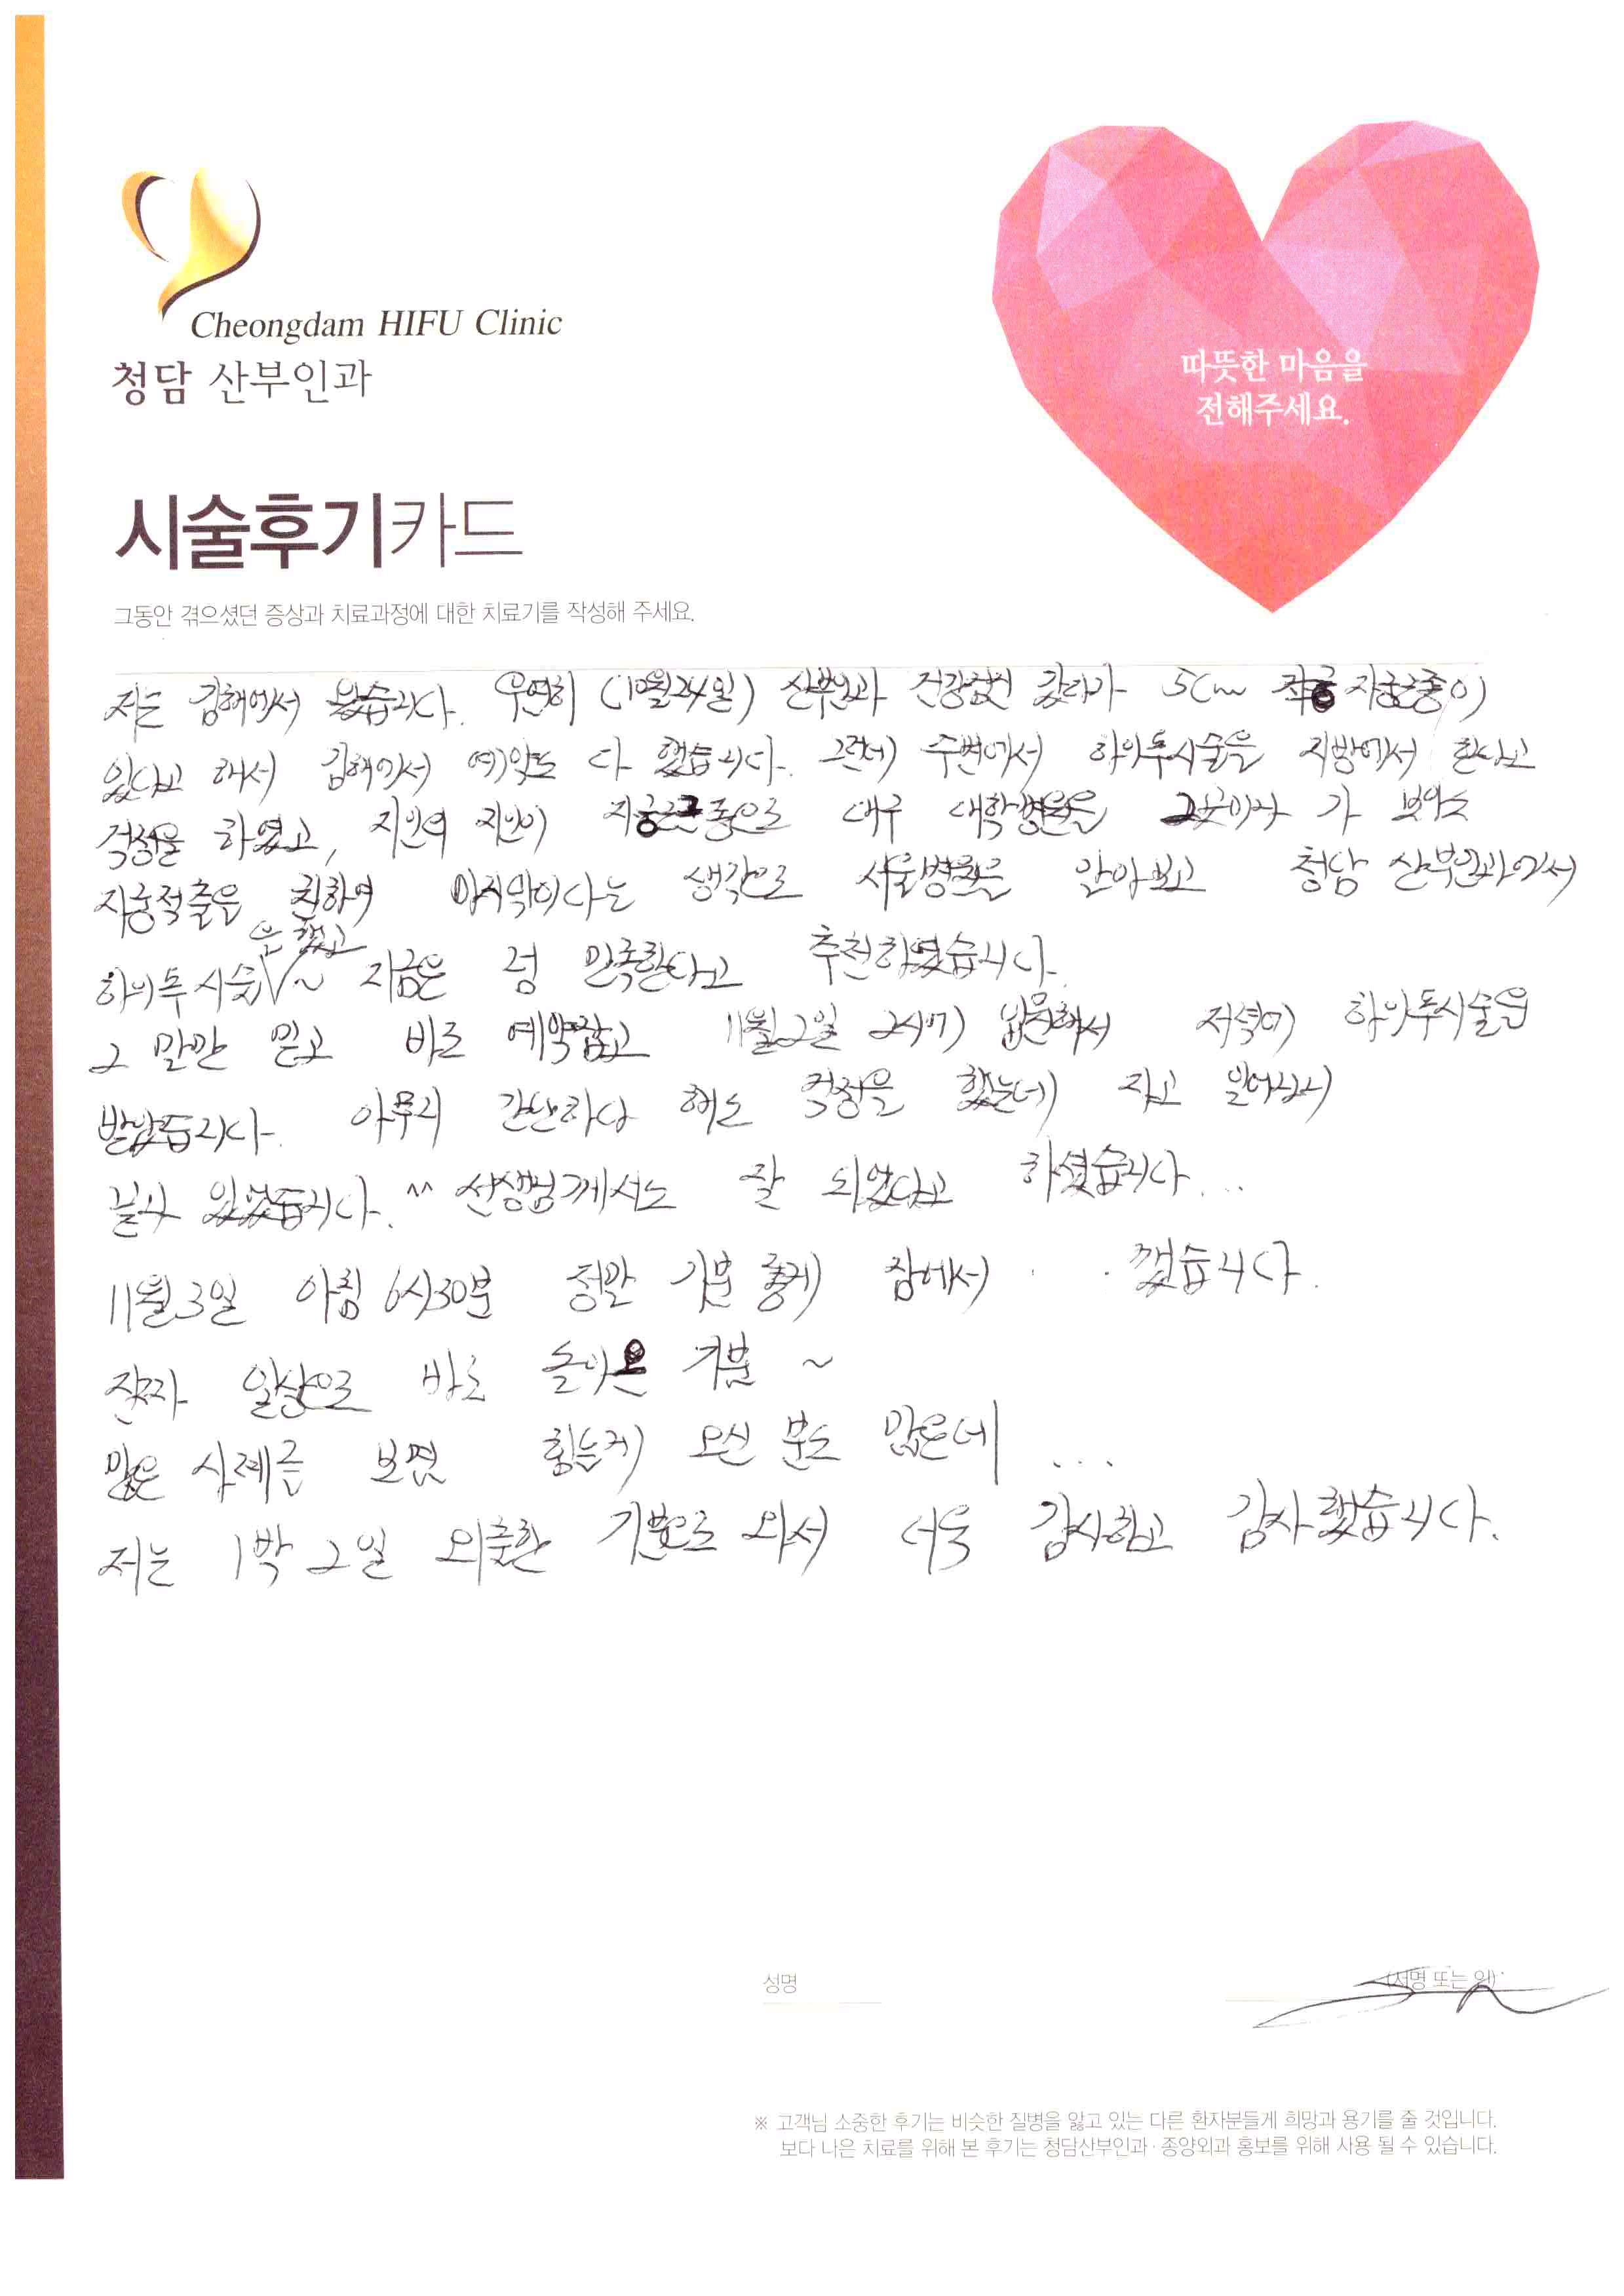 Cheongdam HIFU Clinic
청담 산부인과
따뜻한 마음을
전해주세요.
시술후기카드
그동안 겪으셨던 증상과 치료과정에 대한 치료기를 작성해 주세요.
저는 김해에서 왔습니다. 우연히 (10월24일) 산부인과 건강검진 갔다가 5cm 자궁근종이
있다고 해서 김해에서 예약도 다 했습니다. 그런데 주변에서 하이푸시술을 지방에서 한다고
걱정을 하였고, 지인의 지인이 자궁근종으로 대구 대학병원을 가 보아도
자궁적출을 권하여 마지막이다는 생각으로 서울병원을 알아보고 청담 산부인과에서
하이푸시술을 했고 ~ 지금은 넘 만족한다고 추천하였습니다.
그 말만 믿고 바로 예약잡고 11월2일 2시에 방문해서 저녁에 하이푸시술을
받았습니다. 아무리 간단하다 해도 걱정을 했는데 자고 일어나니
끝나 있었습니다. ^^ 선생님께서도 잘 되었다고 하셨습니다...
11월3일 아침 6시30분 정말 기분 좋게 잠에서 깼습니다.
진짜 일상으로 바로 돌아온 기분 ~
많은 사례를 보면 힘들게 오신 분도 많은데 ...
저는 1박 2일 외출한 기분으로 와서 더욱 감사하고 감사했습니다.
성명
(서명 또는 인)
※ 고객님 소중한 후기는 비슷한 질병을 앓고 있는 다른 환자분들게 희망과 용기를 줄 것입니다.
보다 나은 치료를 위해 본 후기는 청담산부인과·종양외과 홍보를 위해 사용 될 수 있습니다.